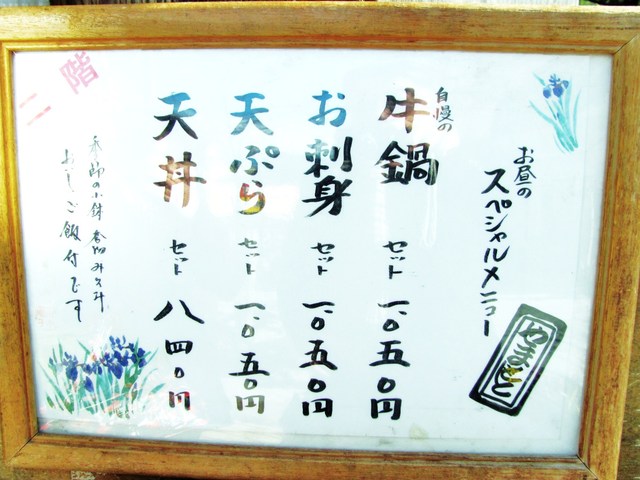 お昼の
スペシャルメニュー
やまと
自慢の
牛鍋 セット 一、〇五〇円
お刺身 セット 一、〇五〇円
天ぷら セット 一、〇五〇円
天丼 セット 八四〇円
季節の小鉢 香物 みそ汁
ご飯付です
二階